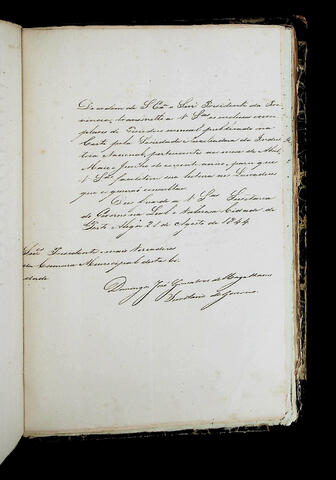 De ordem de S. Exa. o Senr. Presidente da Pro
vincia, transmitto a V. Sas. os inclusos exem
plares do Periodico mensal publicado na
Corte pela Sociedade Auxiliadora da Indus
tria Nacional, pertencentes aos mezes de Abril,
Maio e Junho do corrente anno, para que
V. Sas. facultem sua leitura aos Lavradores
que o queirão consultar.
Deus Guarde a V. Sas. Secretaria
do Governo na Leal e Valorosa Cidade de
Porto Alegre 21 de Agosto de 1844
Snrs. Presidente e mais Vereadores
da Camara Municipal desta Ci
dade
Domingos José Gonçalves de Magalhaens
Secretario do Governo